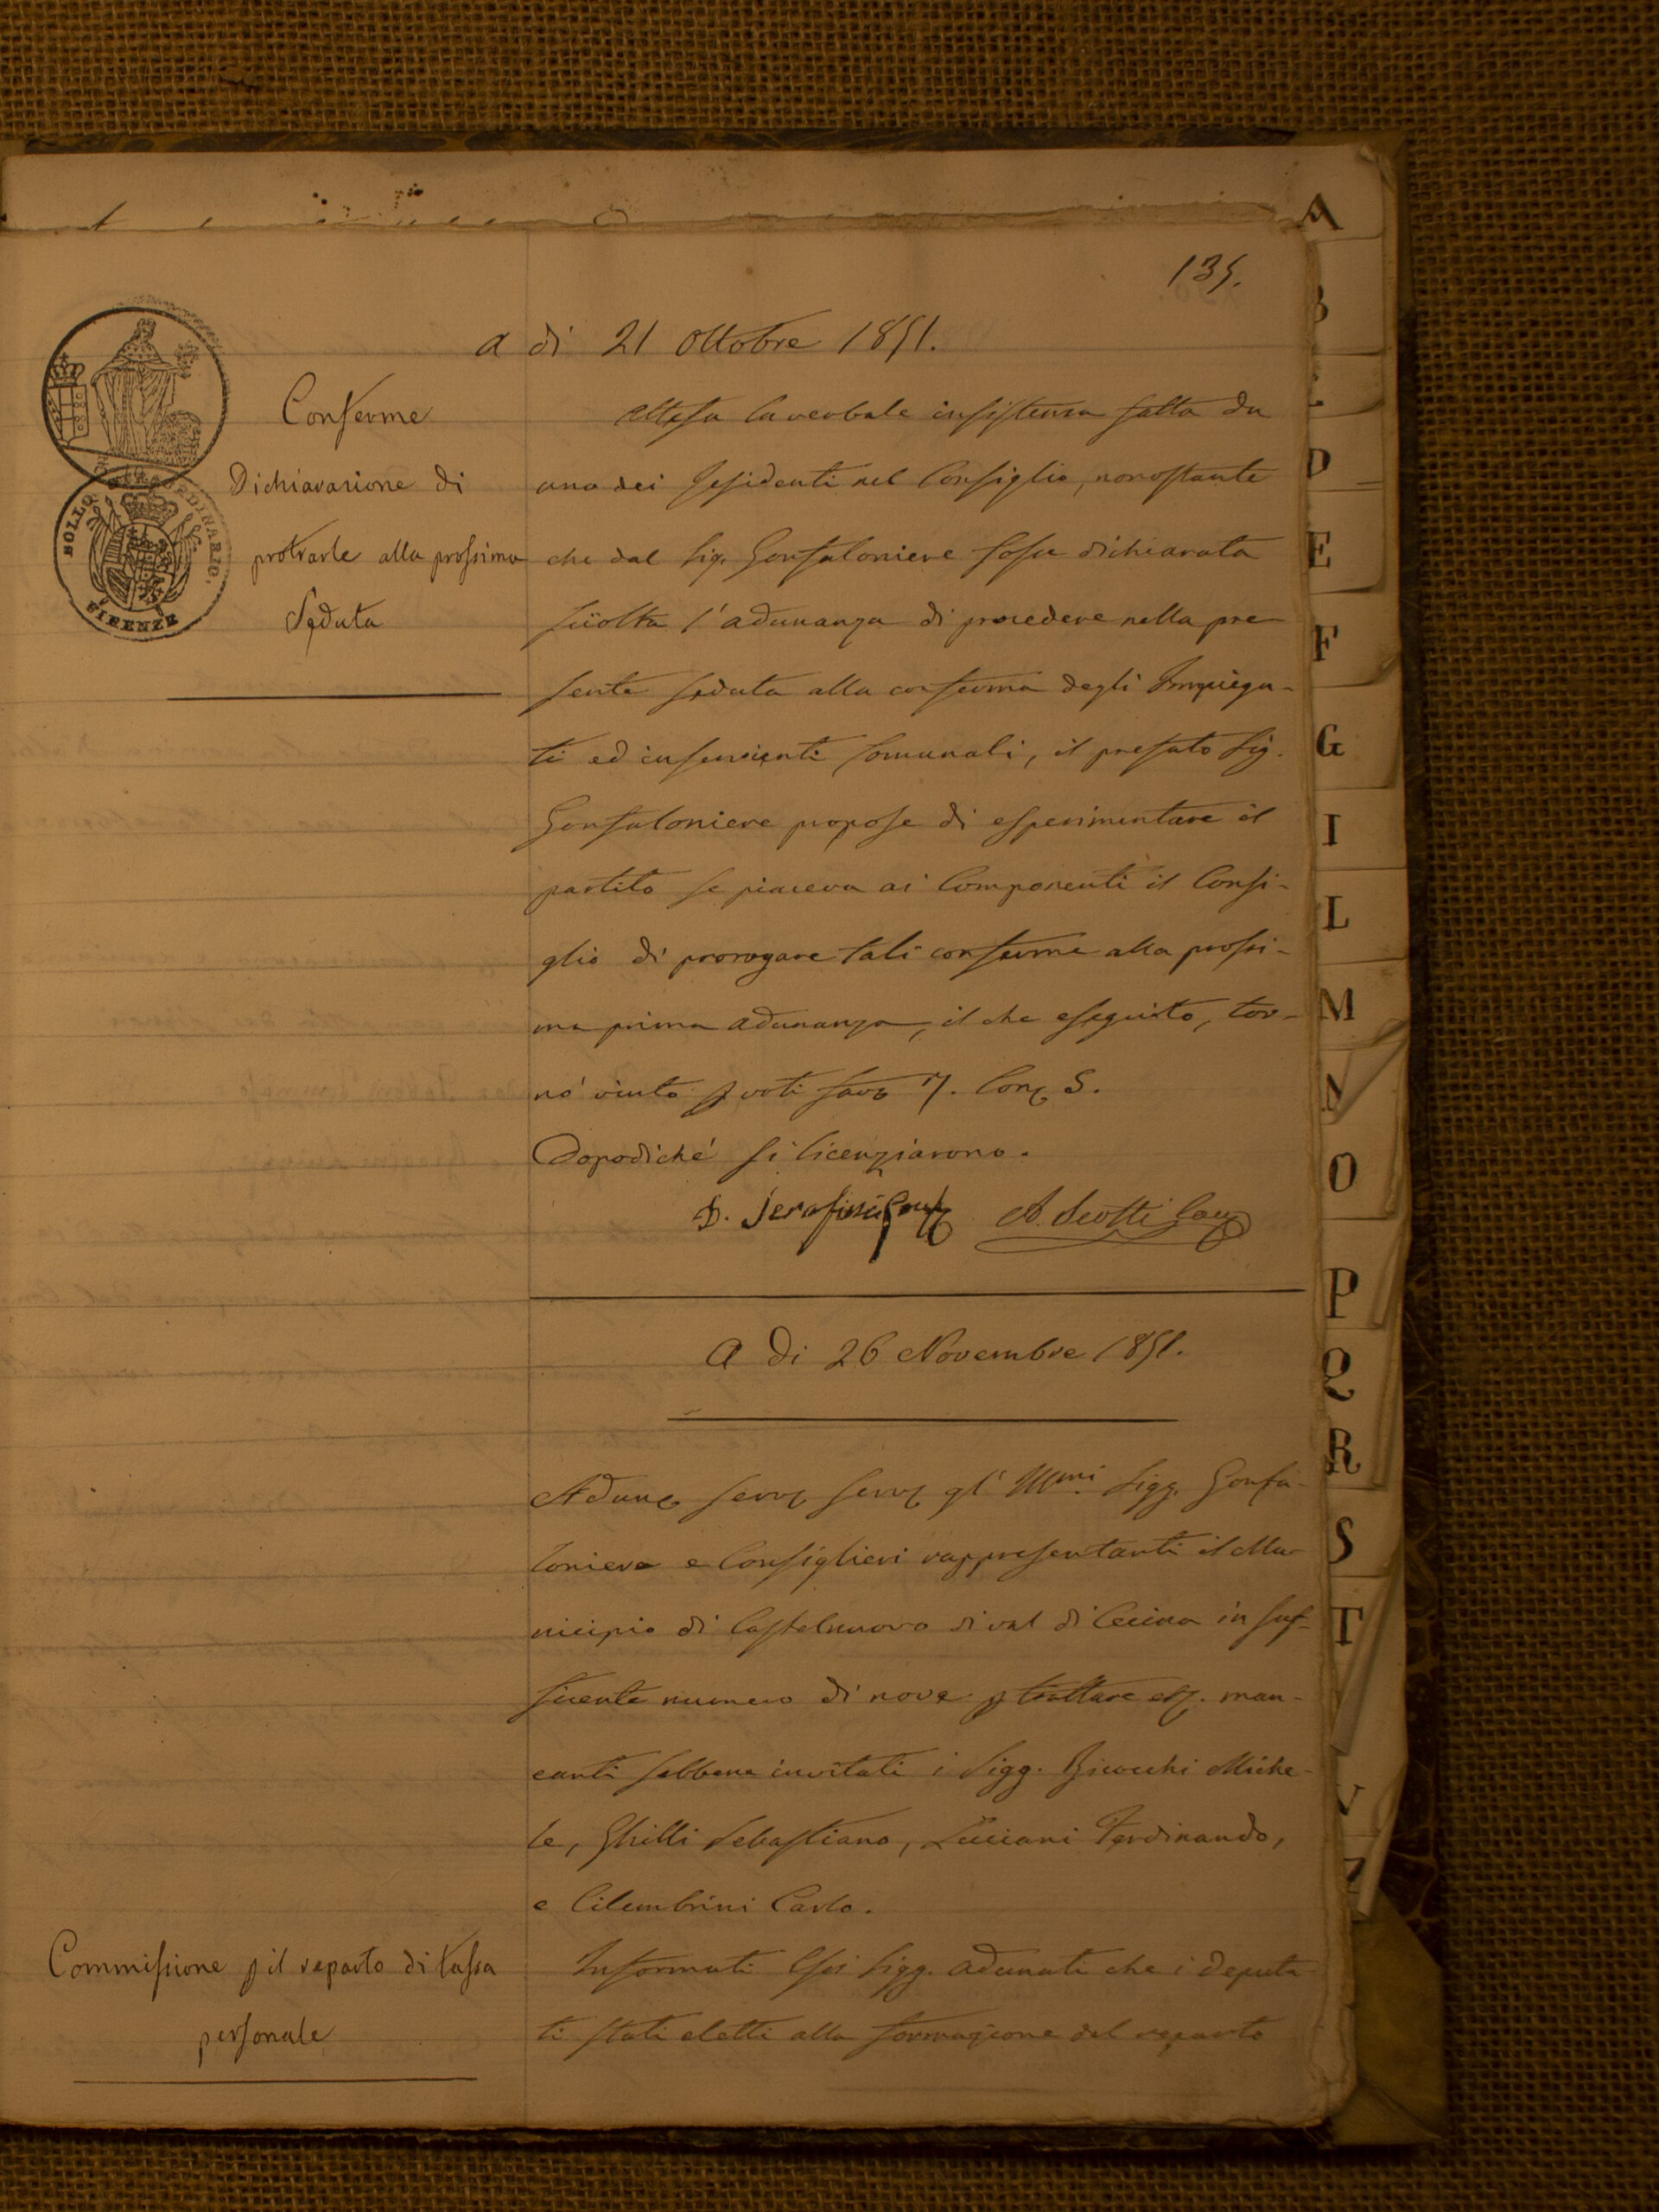 135.
a di 21 Ottobre 1851.
Conferme
Dichiarazione di
protrarle alla prossima
Seduta
Attesa la verbale insistenza fatta da
uno dei Residenti nel Consiglio, nonostante
che dal Sig. Gonfaloniere fosse dichiarata
sciolta l'adunanza di procedere nella pre
sente seduta alla conferma degli Impiega-
ti ed inservienti Comunali, il prefato Sig.
Gonfaloniere propose di esperimentare il
partito se piaceva ai Componenti il Consi-
glio di prorogare tali conferme alla prossi-
ma prima adunanza, il che eseguito, tor-
nò vinto p voti fav 7. Con 5.
Dopodiché si licenziarono.
D. Serafini Gonf A. Scotti Can
A di 26 Novembre 1851.
Adun serv serv gl' Illmi Sigg. Gonfa-
loniere e Consiglieri rappresentanti il Mu-
nicipio di Castelnuovo di val di Cecina in suf-
ficente numero di nove p trattare et. man-
canti sebbene invitati i Sigg. Bicocchi Miche-
le, Ghilli Sebastiano, Luciani Ferdinando,
e Cilembrini Carlo.
Commissione p il reparto di tassa
personale
Informati Essi Sigg. adunati che i deputa-
ti stati eletti alla formazione del reparto
BOLLO STRAORDINARIO.
FIRENZE
A
B
C
D
E
F
G
I
L
M
N
O
P
Q
R
S
T
V
Z